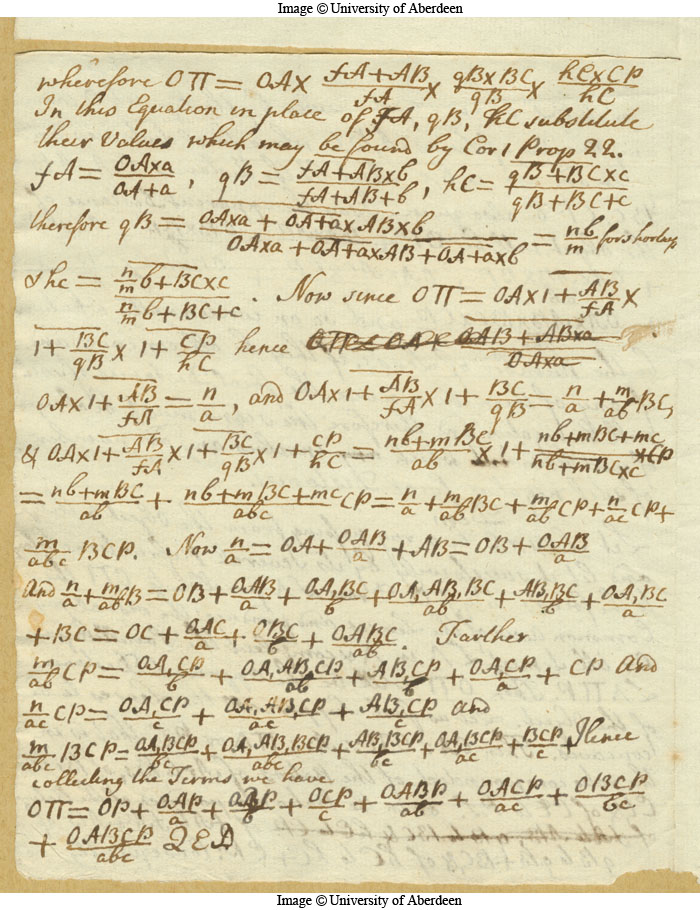 Image © University of Aberdeen
wherefore OΠ = OA× fA+AB/fA × qB×BC/qB × hC×CP/hC
In this Equation in place of fA, qB, hC substitute
their Values which may be found by Cor 1 Prop 22.
fA = OAxa/OA+a, qB = fA+AB×b/fA+AB+b, hC = qB+BC×c/qB+BC+c
therefore qB = OAxa + OA+a×AB×b/OAxa + OA+a×AB + OA+a×b = nb/m for shortness
& hc = n/m b+BC×c/n/m b+BC+c. Now since OΠ = OA×1+AB/fA ×
1+BC/qB × 1+CP/hC hence
OA×1+AB/fA = n/a, and OA×1+AB/fA × 1+BC/qB = n/a + m/ab BC,
& OA×1+AB/fA ×1+BC/qB ×1+CP/hC = nb+mBC/ab × 1+nb+mBC+mc/nb+mBC×c ×CP
= nb+mBC/ab + nb+mBC+mc/abc CP = n/a + m/ab BC + m/ab CP + n/ac CP +
m/abc BCP. Now n/a = OA + OAB/a + AB = OB + OAB/a
And n/a + m/ab B = OB + OAB/a + OA,BC/b + OA,AB,BC/ab + AB,BC/b + OA,BC/a
+ BC = OC + OAC/a + OBC/b + OABC/ab. Farther
m/ab CP = OA,CP/b + OA,AB,CP/ab + AB,CP/b + OA,CP/a + CP And
n/ac CP = OA,CP/c + OA,AB,CP/ac + AB,CP/c and
m/abc BCP = OA,BCP/bc + OA,AB,BCP/abc + AB,BCP/bc + OA,BCP/ac + BCP/c + Hence
collecting the Terms we have
OΠ = OP + OAP/a + OBP/b + OCP/c + OABP/ab + OACP/ac + OBCP/bc
+ OABCP/abc QED
Image © University of Aberdeen